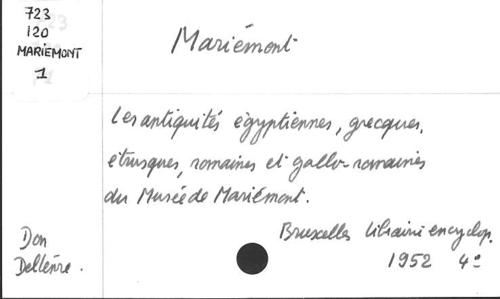 723
120
MARIEMONT
1
Mariémont
Les antiquités égyptiennes, grecques,
étrusques, romaines et gallo-romaines
du Musée de Mariémont.
Bruxelles librairie encyclop.
1952 4º
Don